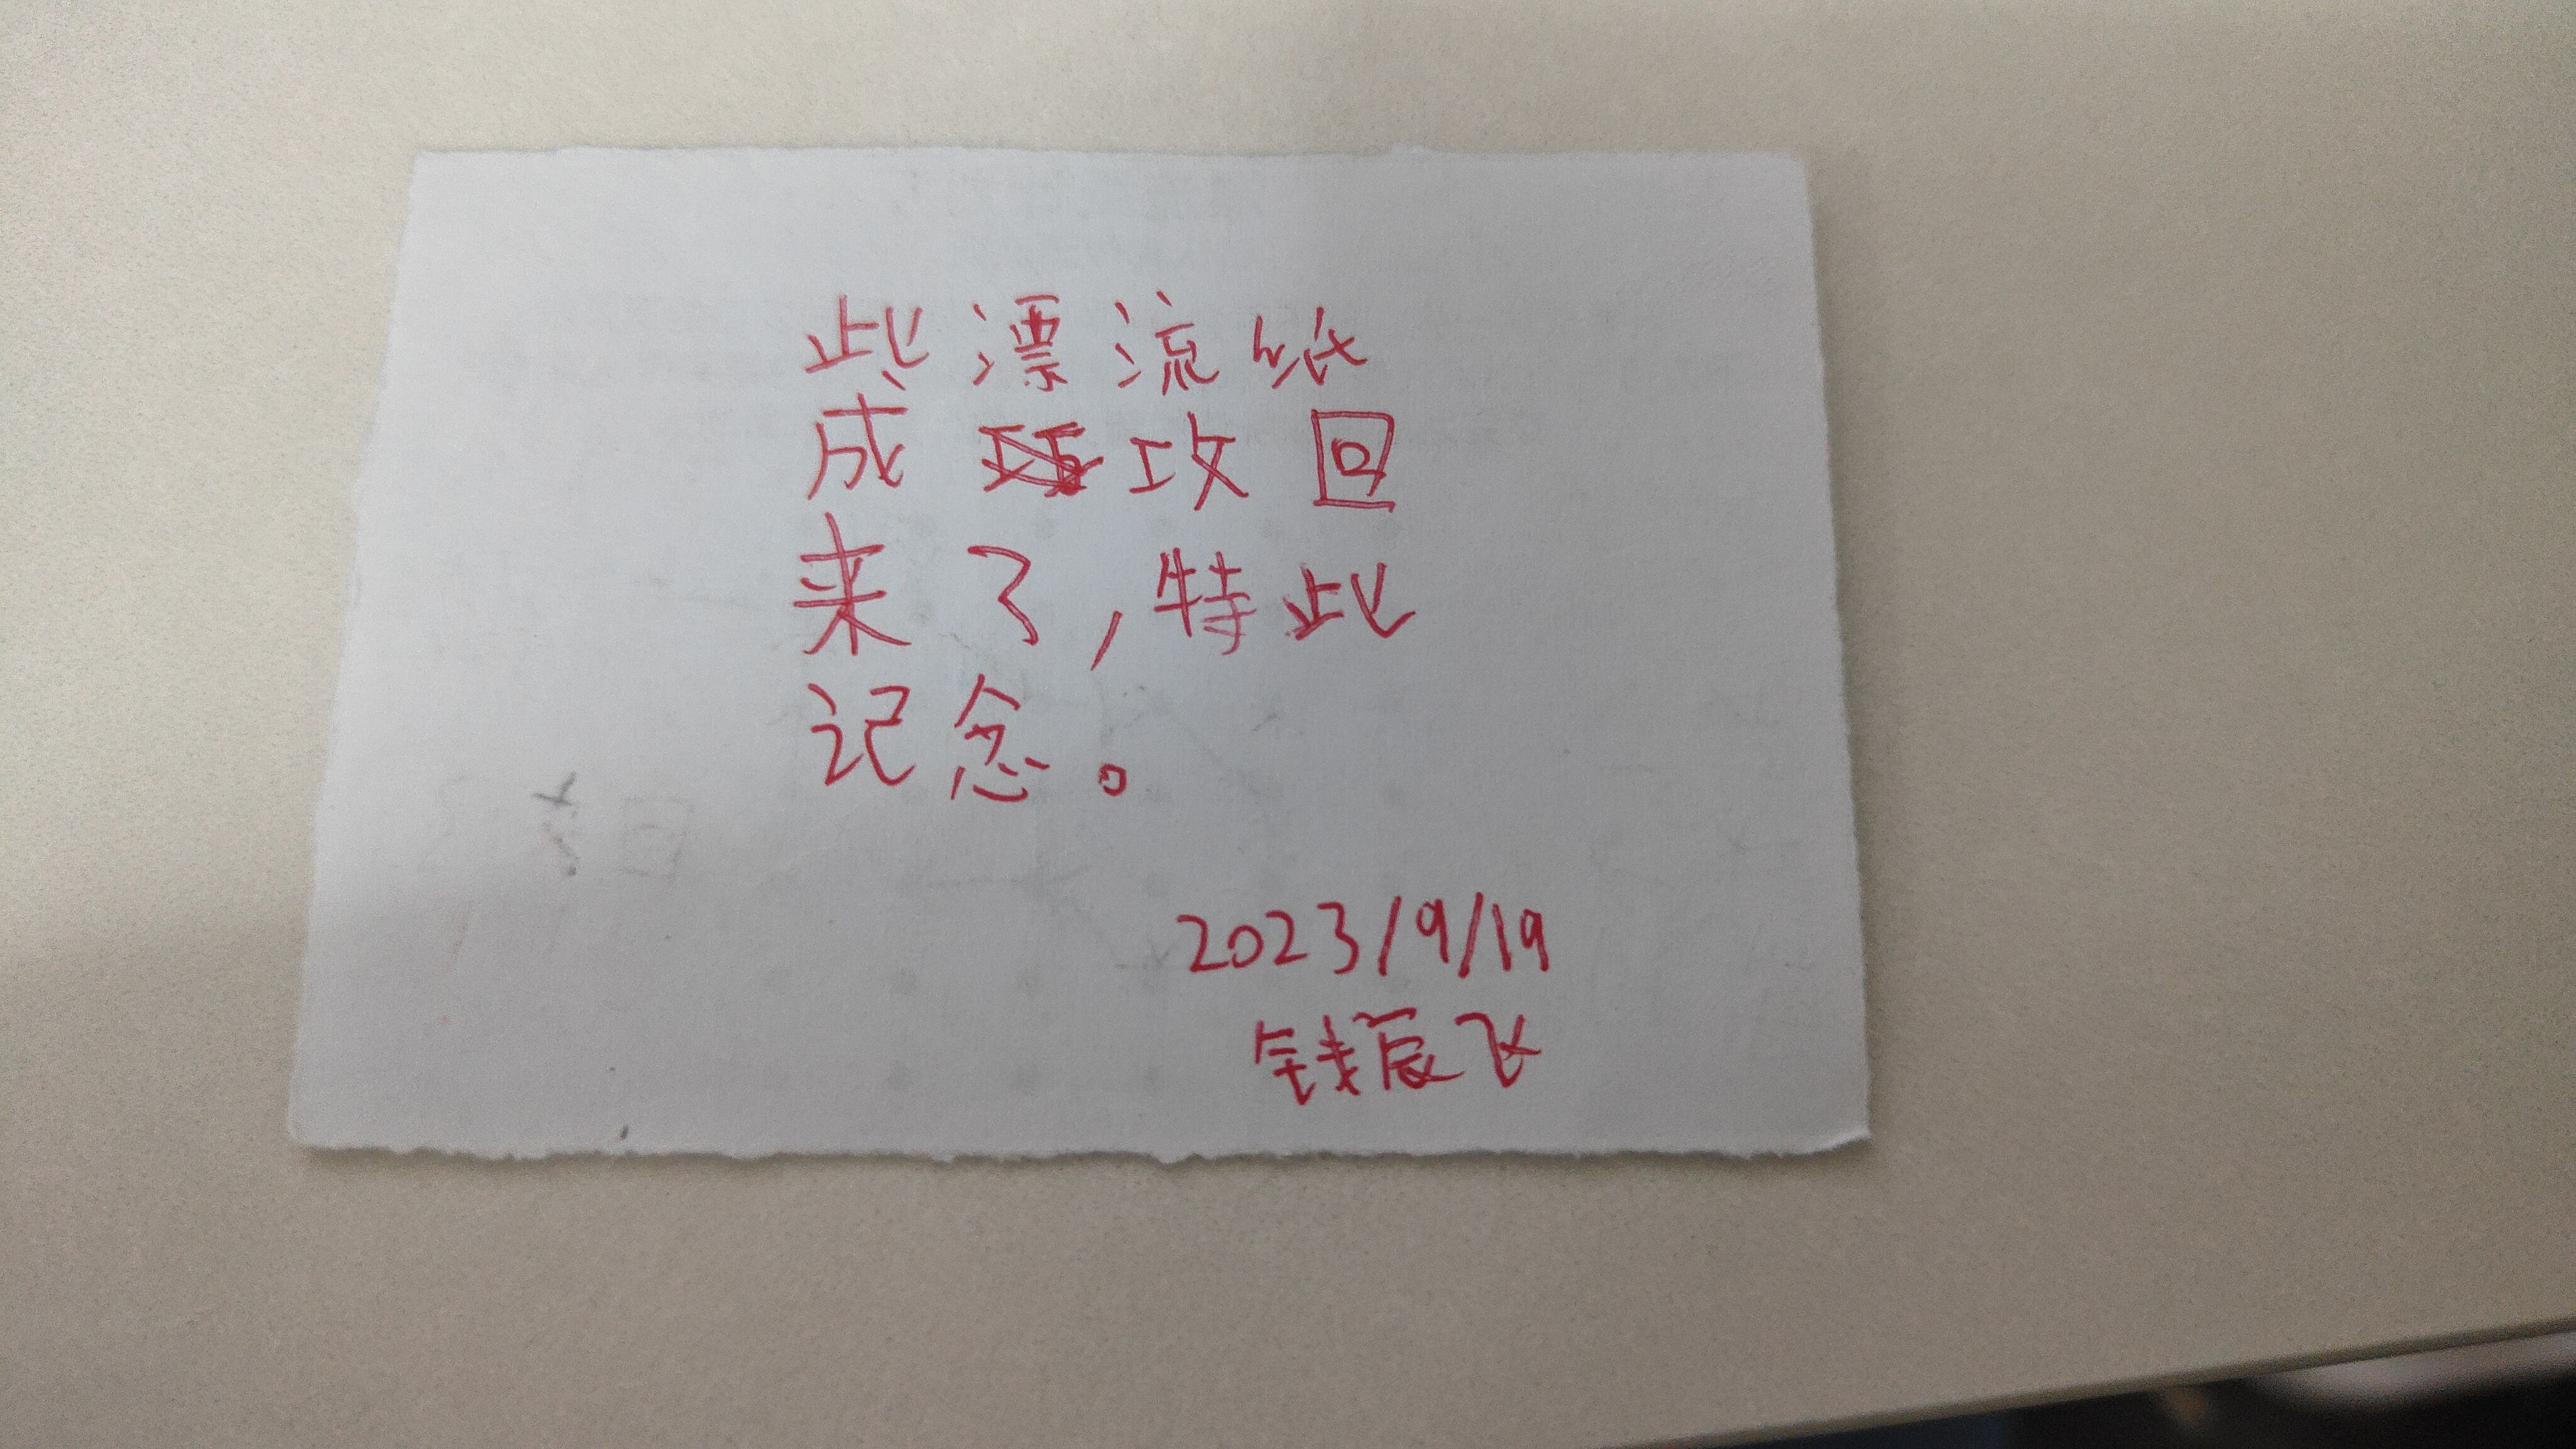 此漂流纸
成攻回
来了,特此
记念。
2023/9/19
钱辰飞